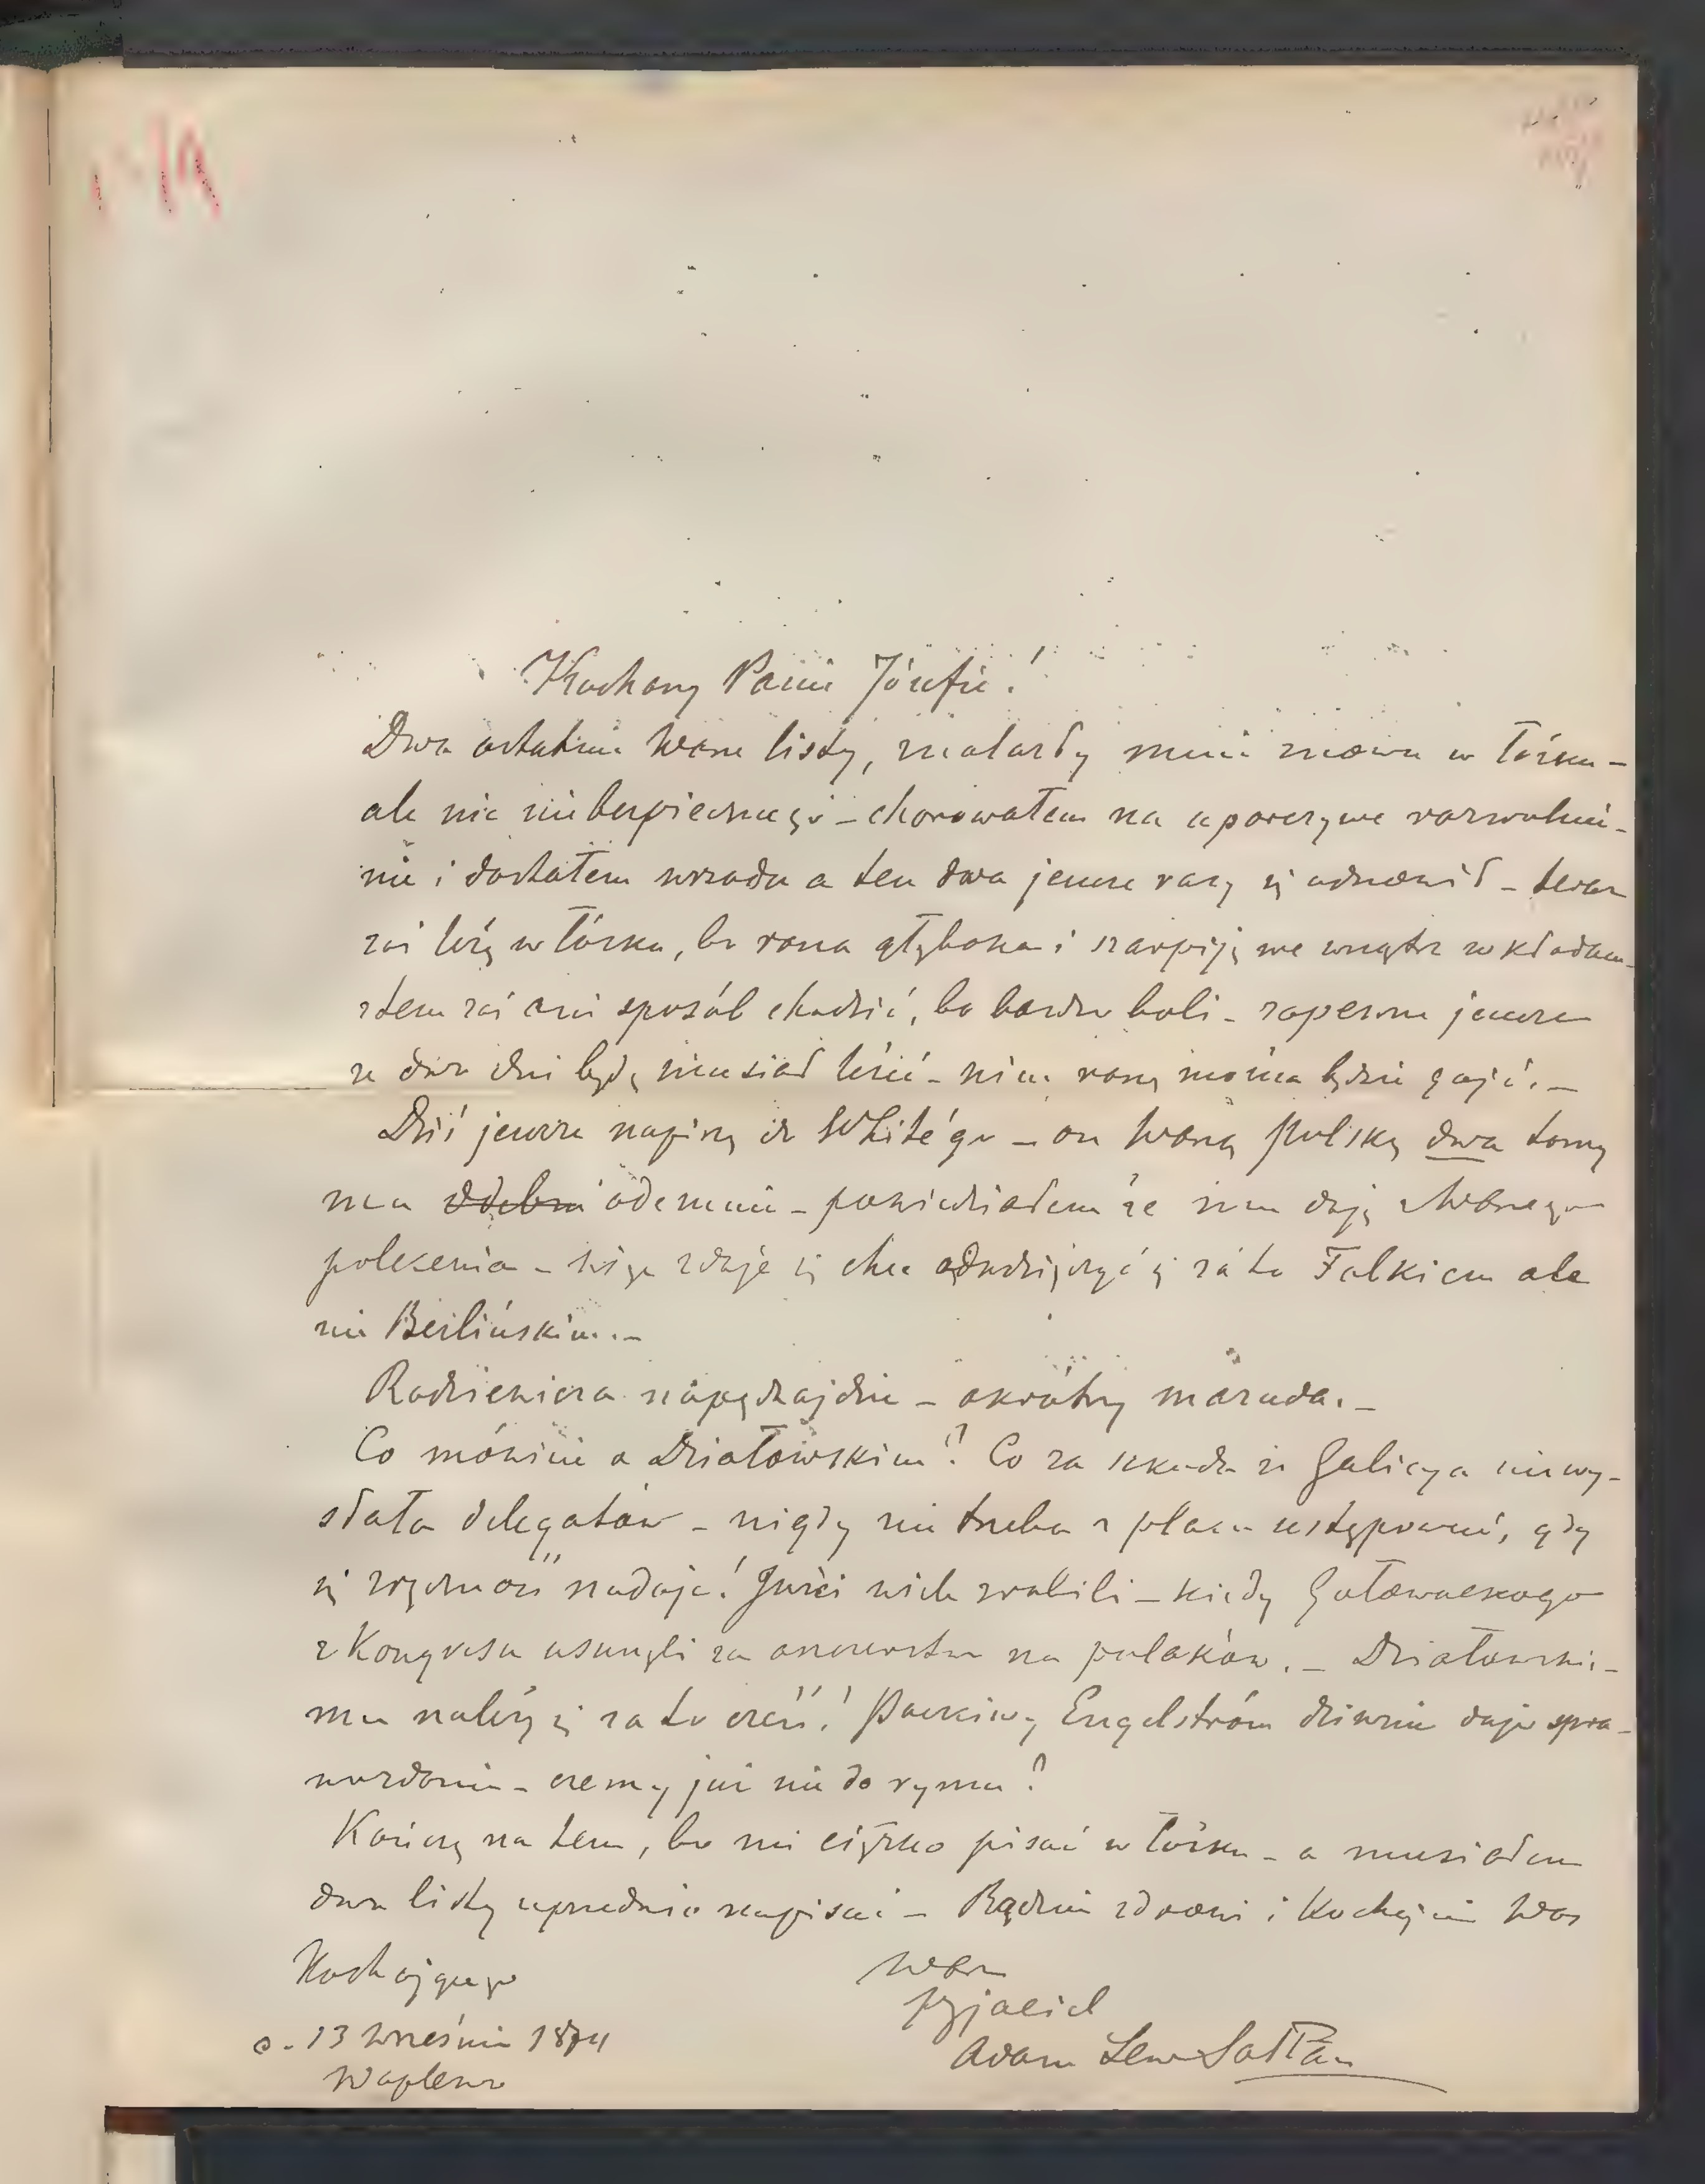 Kochany Panie Józefie!
Dwa ostatnie Wasze listy, znalazły mnie znowu w łóżku –
ale nic niebezpiecznego – chorowałem na uporczywe rozwolnie-
nie i dostałem wrzodu a ten dwa jeszcze razy się odnowił – teraz
zaś leżę w łóżku, bo rana głęboka i szarpiję we wnątrz wkładam –
z tem zaś ani sposób chodzić, bo bardzo boli – zapewne jeszcze
ze dwa dni będę musiał leżeć – nim ranę można będzie goić. –
Dziś jeszcze napiszę do White'go – on Waszą Polskę dwa tomy
ma odemnie – powiedziałem że mu daję z Waszego
polecenia – więc zdaje się chce odwdzięczyć się za to Falkiem ale
nie Berlińskim. –
Radziewicza napędzajcie – okrótny maruda. –
Co mówicie o Działowskim? Co za szkoda że Galicya nie wy-
słała delegatów – nigdy nie trzeba z placu ustępować, gdy
się zręczność nadaje! Juści wiele zrobili – kiedy Gołowackogo
z Kongresu usunęli za oszczerstwo na polaków. – Działowskie-
mu należy się za to cześć! Poczciwy Engelström dziwnie daje spra-
wozdanie – czemy już nie do rymu?
Kończę na tem, bo mi ciężko pisać w łóżku – a musiałem
dwa listy uprzednio napisać – Bądźcie zdrowi i Kochajcie Was
Kochającego
Wasz
przyjaciel
Adam Lew Sołtan
d. 13 Września 1874
Waplewo